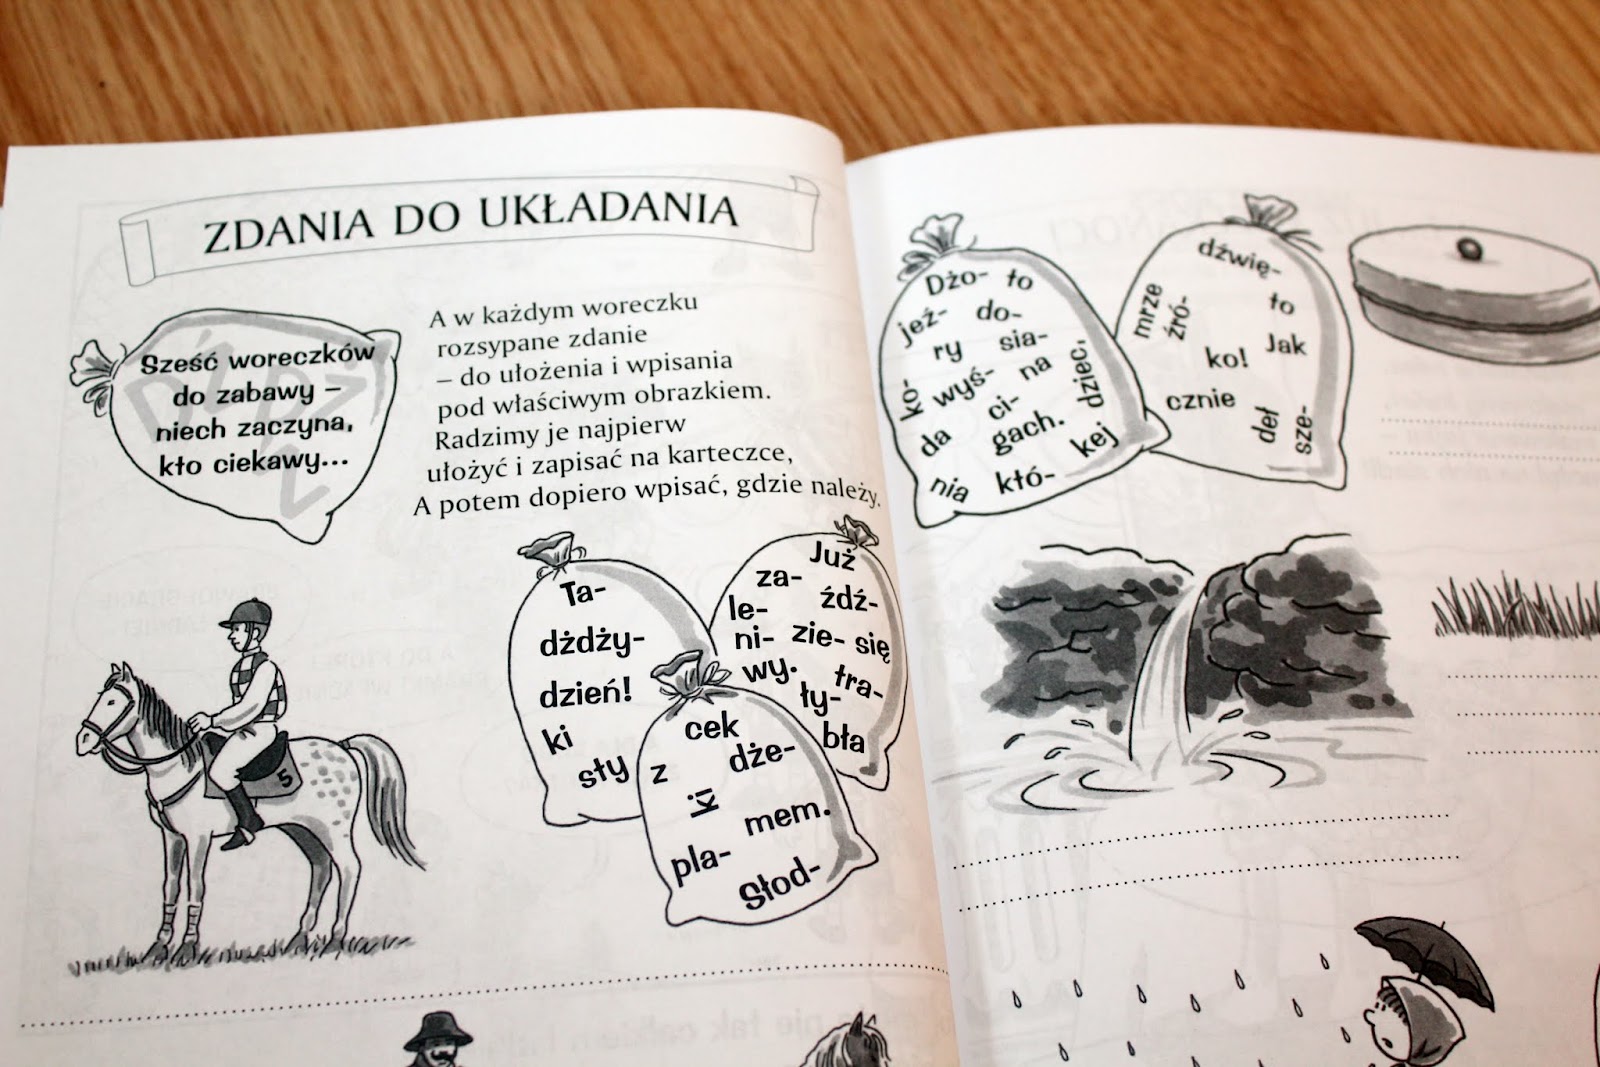 ZDANIA DO UKŁADANIA
Sześć woreczków
do zabawy –
niech zaczyna,
kto ciekawy...
A w każdym woreczku
rozsypane zdanie
– do ułożenia i wpisania
pod właściwym obrazkiem.
Radzimy je najpierw
ułożyć i zapisać na karteczce,
A potem dopiero wpisać, gdzie należy.
Ta-
dżdży-
dzień!
ki
sty
Już
za-
źdź-
le-
ni- zie- się
wy. tra-
ły-
bła
cek
z dże-
ki
mem.
pla-
Słod-
5
Dżo- to
jeź- do-
ry sia-
ko- wyś- na dziec,
ci-
da gach. kej
nia któ-
dźwię-
mrze to
źró-
ko! Jak
cznie
deł sze-